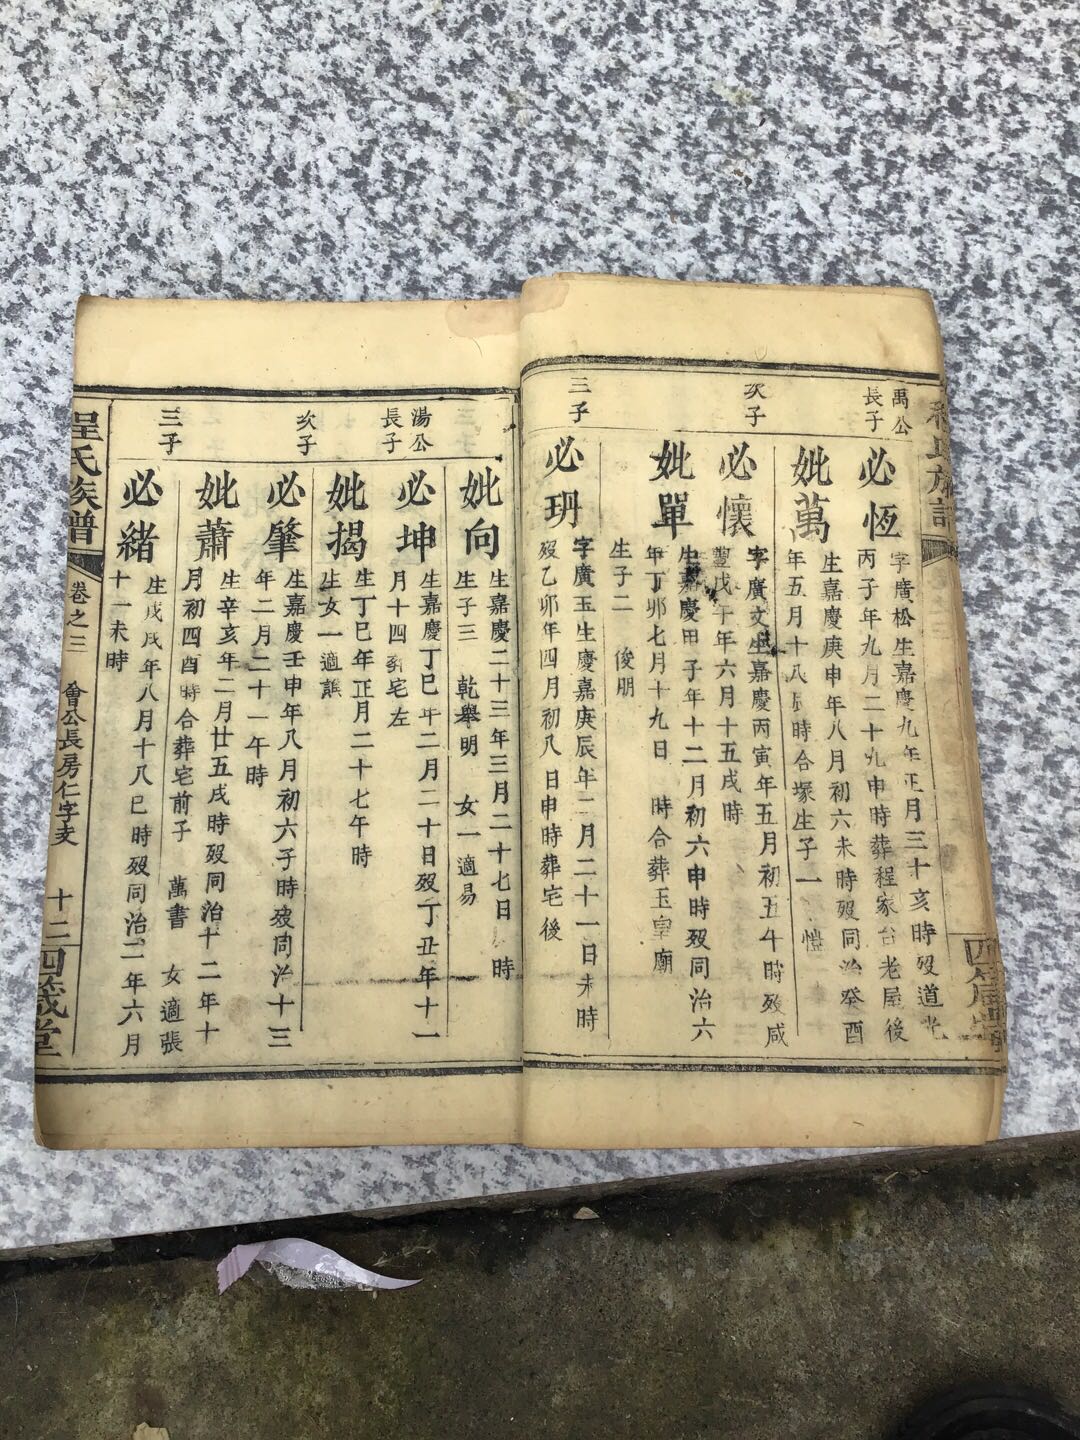 禹公
長子
必恆
字廣松生嘉慶九年正月三十亥時歿道光
丙子年九月二十九申時葬程家台老屋後
妣萬
生嘉慶庚申年八月初六未時歿同治癸酉
年五月十八辰時合塚生子一 愷
次子
必懷
字廣文生嘉慶丙寅年五月初五午時歿咸
豐戊午年六月十五戌時
妣單
生嘉慶甲子年十二月初六申時歿同治六
年丁卯七月十九日 時合葬玉皇廟
生子二 後朋
三子
必玥
字廣玉生慶嘉庚辰年二月二十一日未時
歿乙卯年四月初八日申時葬宅後
妣向
生嘉慶二十三年三月二十七日 時
生子三 乾舉明 女一適易
湯公
長子
必坤
生嘉慶丁巳年二月二十日歿丁丑年十一
月十四 宅左
妣揭
生丁巳年正月二十七午時
生女一適
次子
必肇
生嘉慶壬申年八月初六子時歿同治十三
年二月二十一午時
妣蕭
生辛亥年二月廿五戌時歿同治十二年十
月初四酉時合葬宅前子 萬書 女適張
三子
必緒
生戊戌年八月十八巳時歿同治二年六月
十一未時
程氏族譜
卷之三
會公長房仁字支
十二
四箴堂